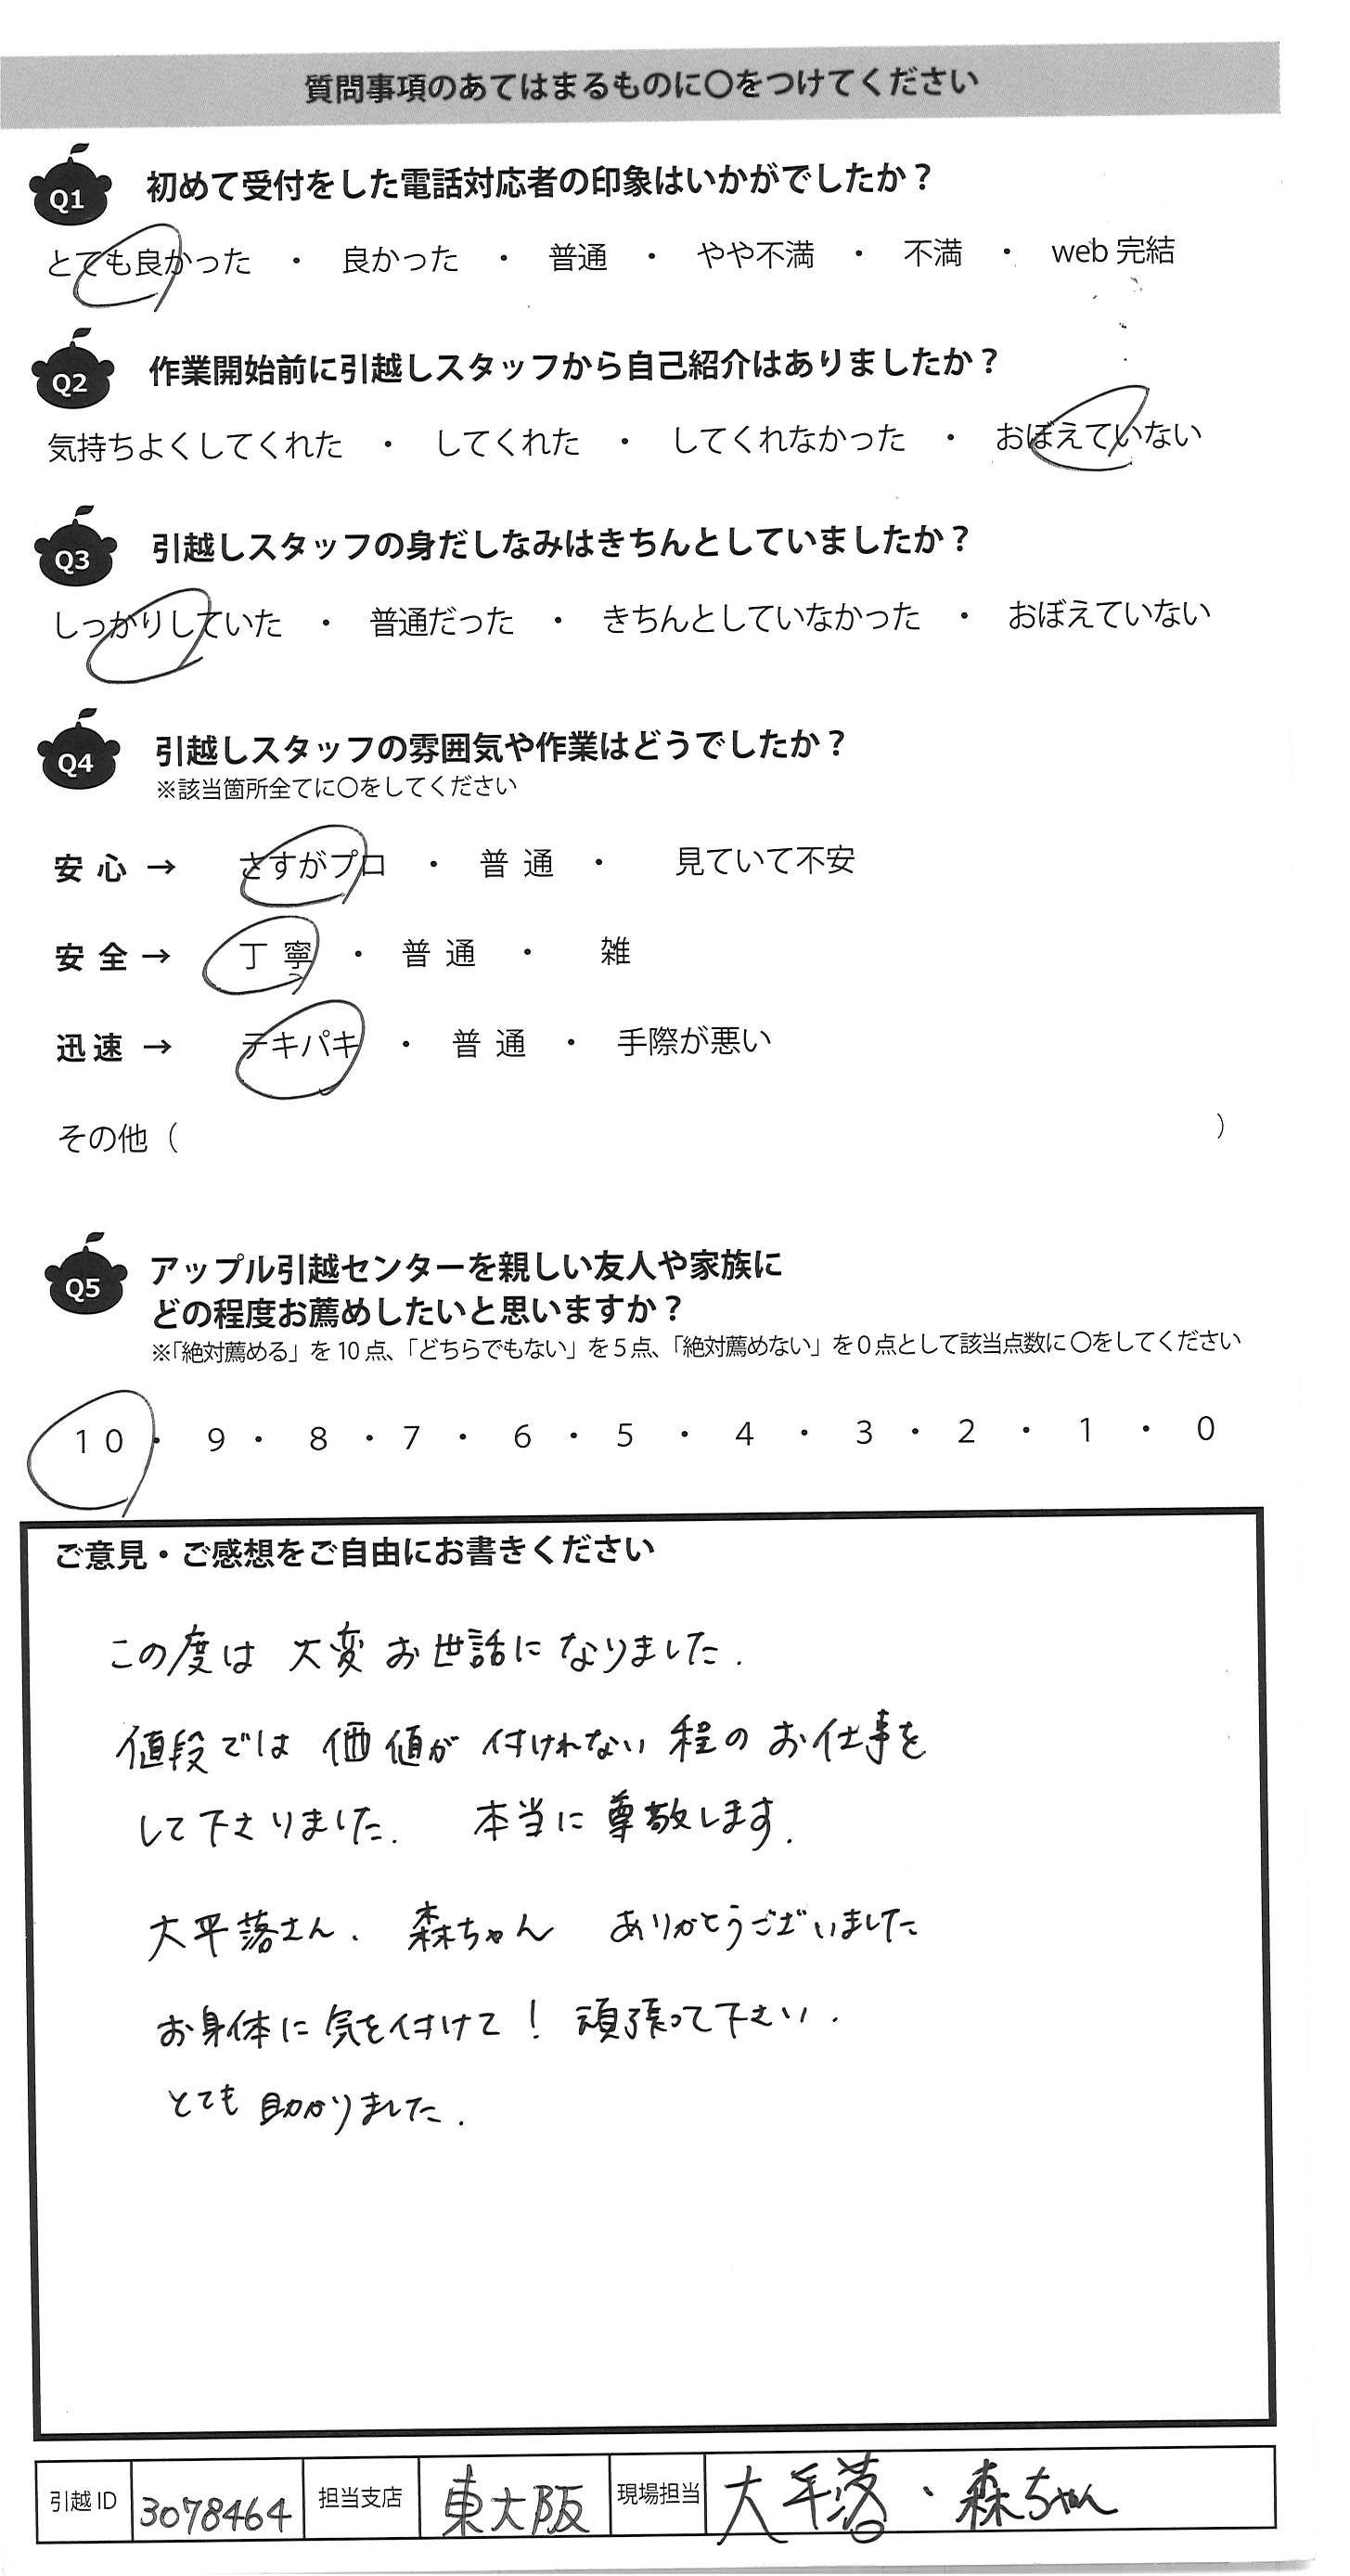 質問事項のあてはまるものに〇をつけてください
Q1 初めて受付をした電話対応者の印象はいかがでしたか？
とても良かった ・ 良かった ・ 普通 ・ やや不満 ・ 不満 ・ web 完結
Q2 作業開始前に引越しスタッフから自己紹介はありましたか？
気持ちよくしてくれた ・ してくれた ・ してくれなかった ・ おぼえていない
Q3 引越しスタッフの身だしなみはきちんとしていましたか？
しっかりしていた ・ 普通だった ・ きちんとしていなかった ・ おぼえていない
Q4 引越しスタッフの雰囲気や作業はどうでしたか？
※該当箇所全てに〇をしてください
安心 → さすがプロ ・ 普通 ・ 見ていて不安
安全 → 丁寧 ・ 普通 ・ 雑
迅速 → テキパキ ・ 普通 ・ 手際が悪い
その他（ ）
Q5 アップル引越センターを親しい友人や家族に
どの程度お薦めしたいと思いますか？
※「絶対薦める」を 10 点、「どちらでもない」を 5 点、「絶対薦めない」を 0 点として該当点数に 〇をしてください
10 ・ 9 ・ 8 ・ 7 ・ 6 ・ 5 ・ 4 ・ 3 ・ 2 ・ 1 ・ 0
ご意見・ご感想をご自由にお書きください
この度は 大変 お世話に なりました.
値段では 価値が 付けれない 程の お仕事を
して下さりました. 本当に 尊敬します.
大平落さん. 森ちゃん ありがとうございました
お身体に 気を付けて！ 頑張って下さい.
とても 助かりました.
引越 ID 3078464 担当支店 東大阪 現場担当 大平落・森ちゃん